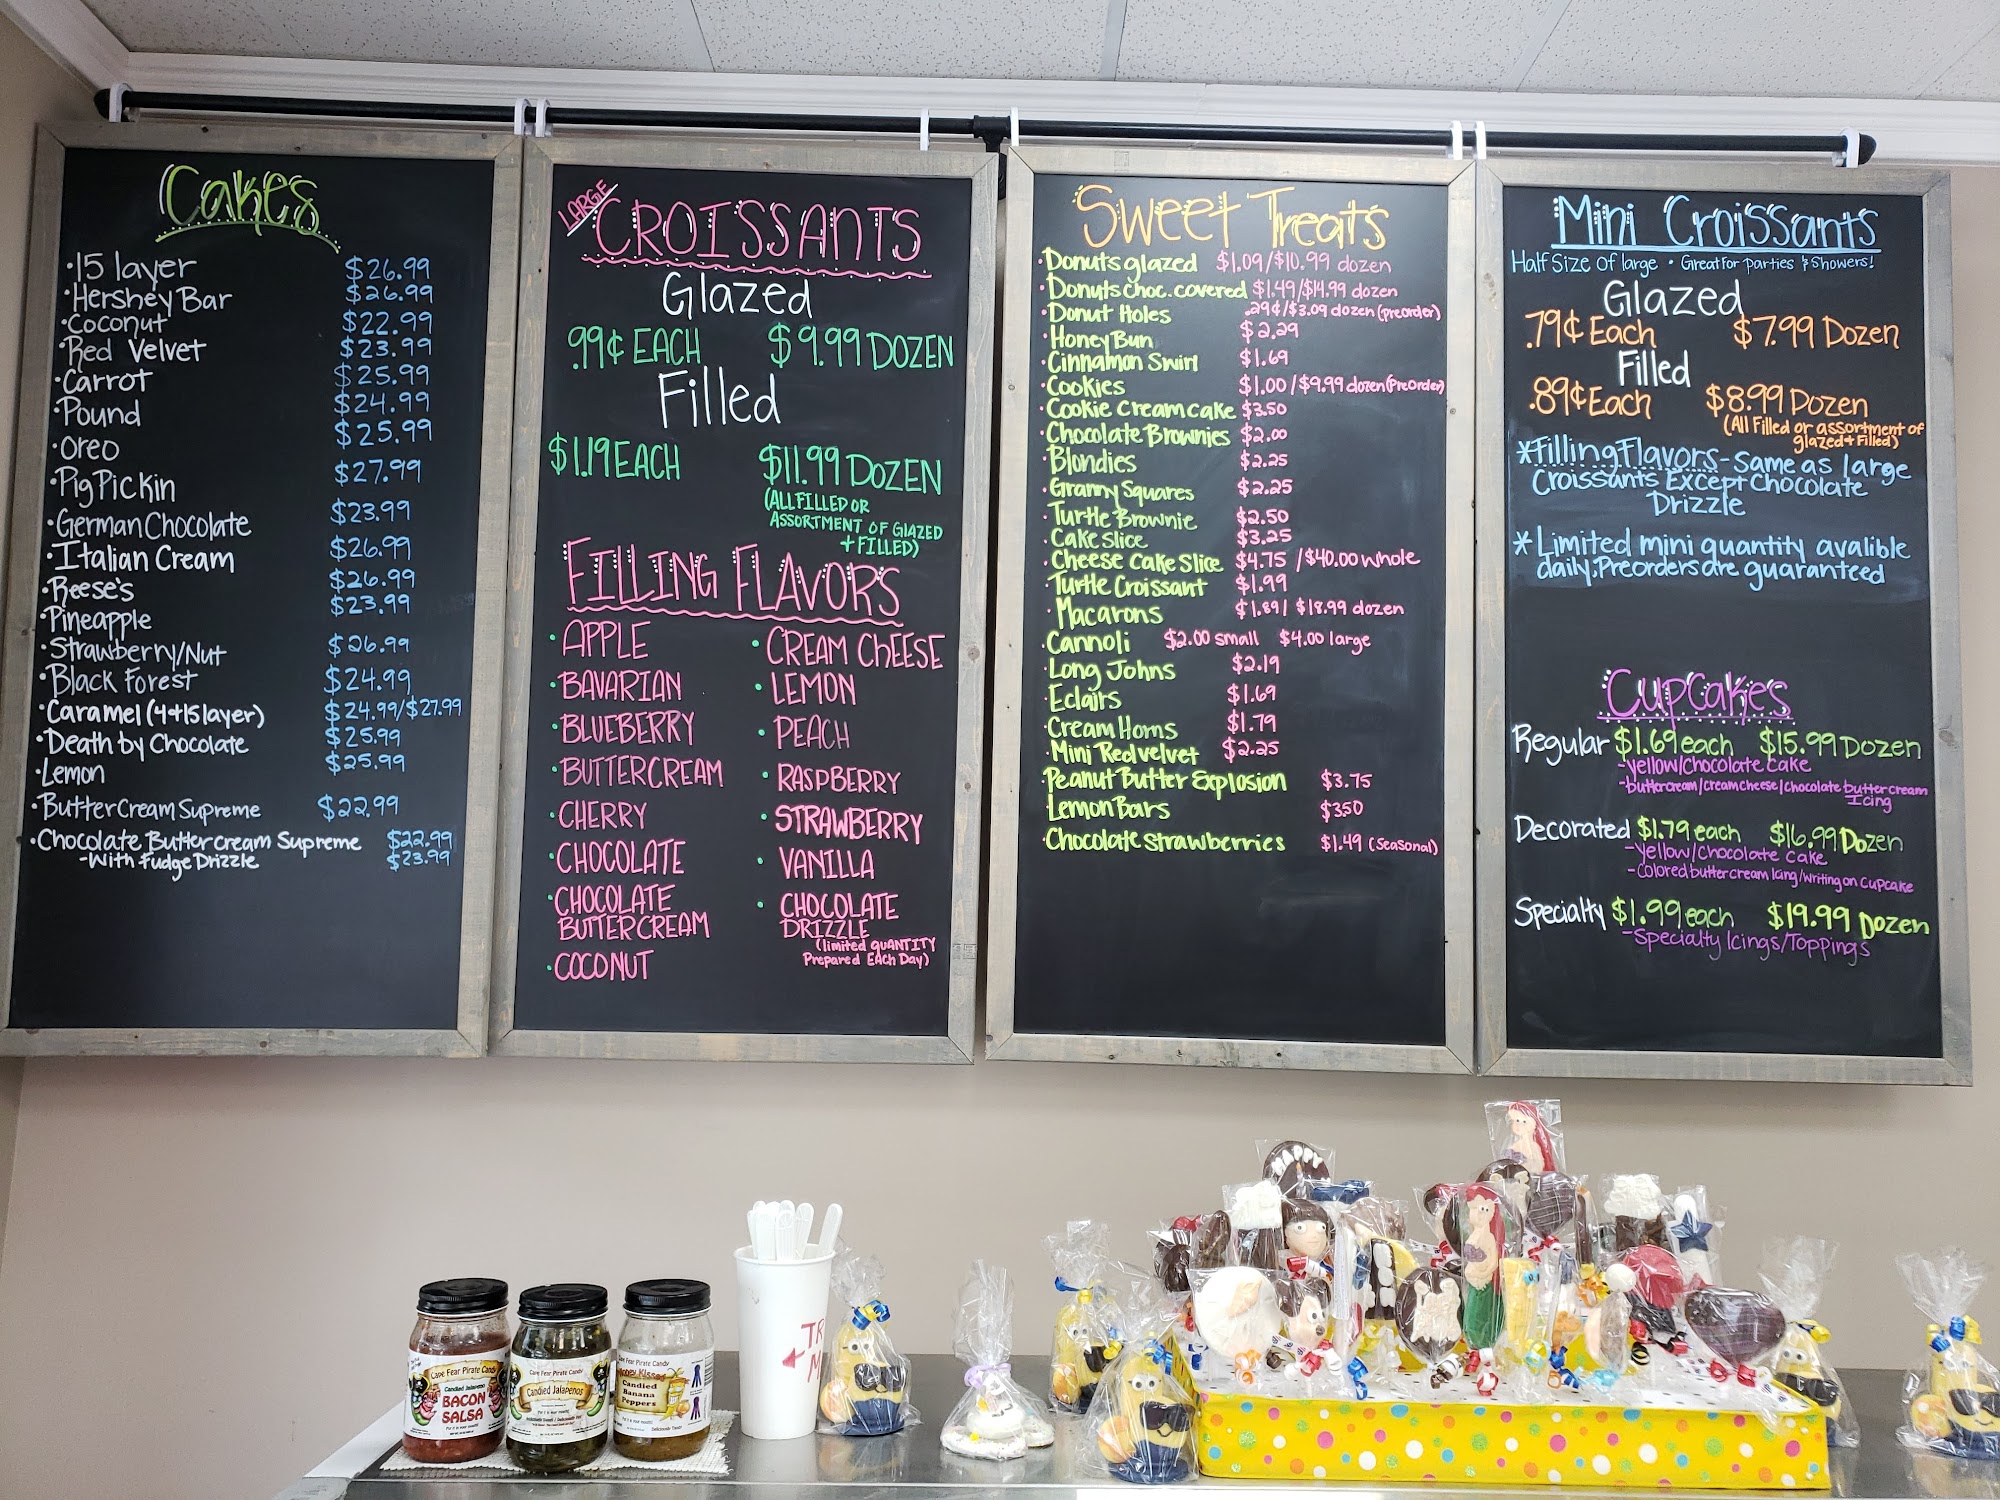 Cakes
·15 layer $26.99
·Hershey Bar $26.99
·Coconut $22.99
·Red Velvet $23.99
·Carrot $25.99
·Pound $24.99
·Oreo $25.99
·Pig Pickin $27.99
·German Chocolate $23.99
·Italian Cream $26.99
·Reese's $26.99
·Pineapple $23.99
·Strawberry/Nut $26.99
·Black Forest $24.99
·Caramel (4+15 layer) $24.99/$27.99
·Death by Chocolate $25.99
·Lemon $25.99
·ButterCream Supreme $22.99
·Chocolate Buttercream Supreme $22.99
-With Fudge Drizzle $23.99
LARGE
CROISSANTS
Glazed
.99¢ EACH $9.99 DOZEN
Filled
$1.19 EACH $11.99 DOZEN
(ALL FILLED OR
ASSORTMENT OF GLAZED
+ FILLED)
FILLING FLAVORS
·APPLE
·BAVARIAN
·BLUEBERRY
·BUTTERCREAM
·CHERRY
·CHOCOLATE
·CHOCOLATE
BUTTERCREAM
·COCONUT
·CREAM CHEESE
·LEMON
·PEACH
·RASPBERRY
·STRAWBERRY
·VANILLA
·CHOCOLATE
DRIZZLE
(limited QUANTITY
Prepared Each Day)
Sweet Treats
·Donuts glazed $1.09/$10.99 dozen
·Donuts choc. covered $1.49/$14.99 dozen
·Donut Holes .29¢/$3.09 dozen (preorder)
·Honey Bun $2.29
·Cinnamon Swirl $1.69
·Cookies $1.00/$9.99 dozen (PreOrder)
·Cookie Cream cake $3.50
·Chocolate Brownies $2.00
·Blondies $2.25
·Granny Squares $2.25
·Turtle Brownie $2.50
·Cake slice $3.25
·Cheese Cake Slice $4.75 /$40.00 whole
·Turtle Croissant $1.99
·Macarons $1.89/ $18.99 dozen
·Cannoli $2.00 small $4.00 large
·Long Johns $2.19
·Eclairs $1.69
·Cream Horns $1.79
·Mini Red velvet $2.25
·Peanut Butter Explosion $3.75
·Lemon Bars $3.50
·Chocolate Strawberries $1.49 (Seasonal)
Mini Croissants
Half Size Of large · Great For Parties & Showers!
Glazed
.79¢ Each $7.99 Dozen
Filled
.89¢ Each $8.99 Dozen
(All Filled or assortment of
glazed + Filled)
*Filling Flavors - Same as large
Croissants Except Chocolate
Drizzle
*Limited mini quantity avalible
daily; Preorders are guaranteed
CupCakes
Regular $1.69 each $15.99 Dozen
-yellow/chocolate cake
-buttercream/cream cheese/chocolate buttercream
Icing
Decorated $1.79 each $16.99 Dozen
-yellow/chocolate cake
-colored buttercream Icing/writing on cupcake
Specialty $1.99 each $19.99 Dozen
-Specialty Icings/Toppings
HAPPY
Cape Fear Pirate Candy
Candied Jalapeno
BACON
SALSA
Cape Fear Pirate Candy
Candied Jalapenos
Cape Fear Pirate Candy
Honey Kissed
Candied
Banana
Peppers
TR
M